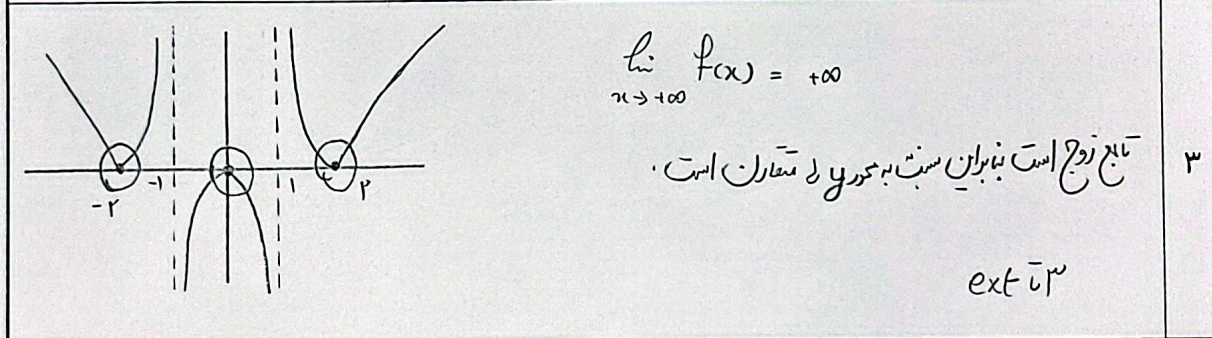 lim f(x) = +∞
x→+∞
تابع زوج است بنابراین نسبت به محور y ها متقارن است.
۳
۳ تا ext
-۲ -۱ ۱ ۲